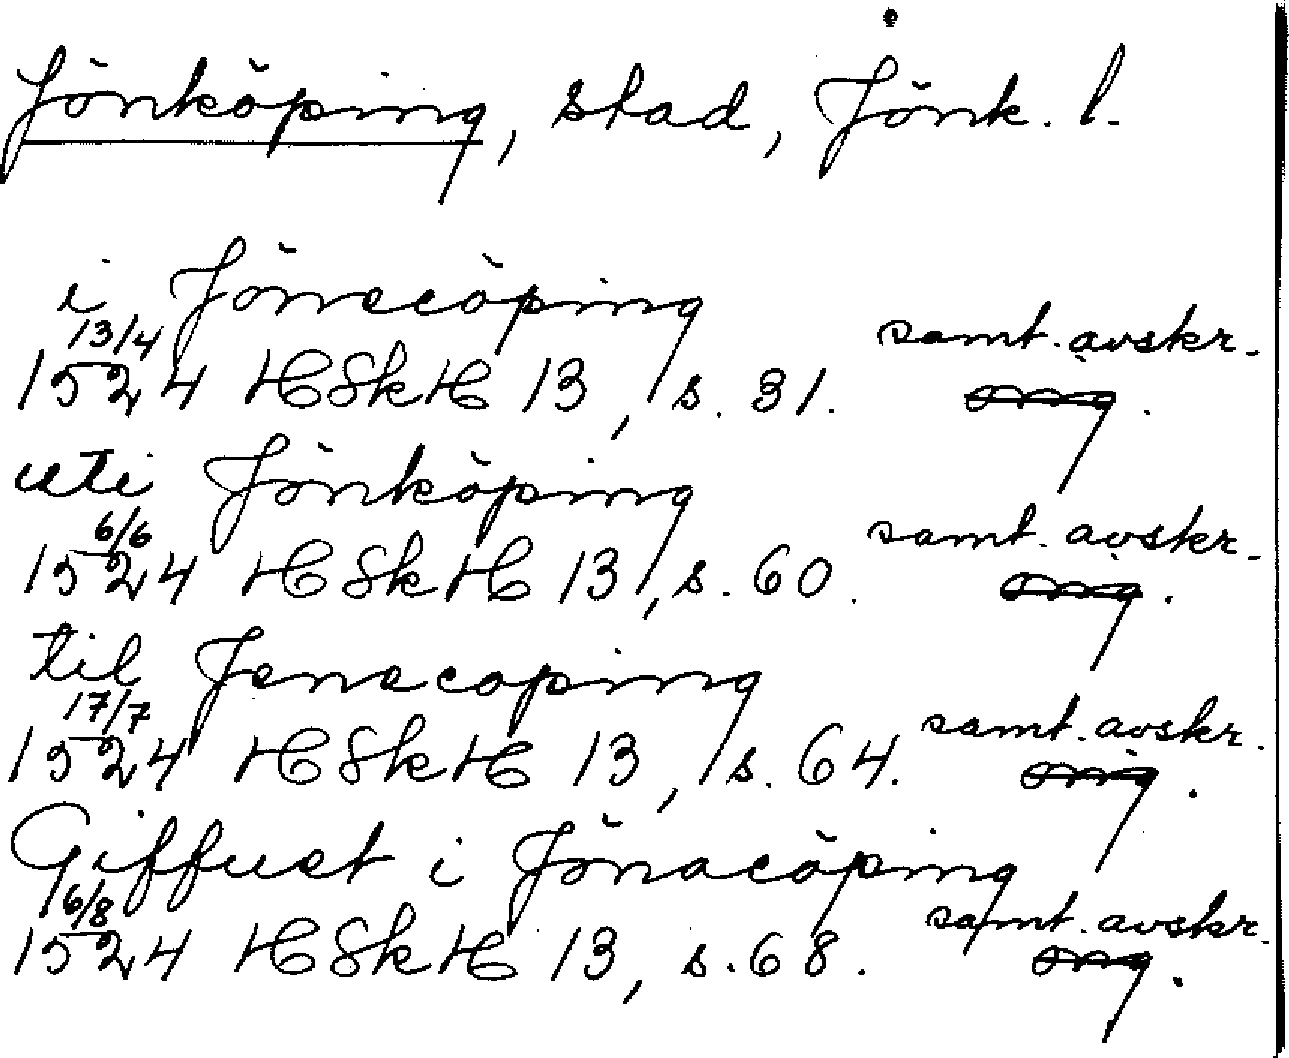 Jönköping, stad, Jönk. l.
i Jönecöping
13/4 samt. avskr.
1524 HSkH 13, s. 31. orig.
uti Jönköping
6/6 samt. avskr.
1524 HSkH 13, s. 60. orig.
til Jenecoping
17/7 samt. avskr.
1524 HSkH 13, s. 64. orig.
Giffuet i Jönacöping
16/8 samt. avskr.
1524 HSkH 13, s. 68. orig.